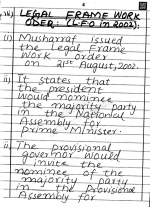 xii) LEGAL FRAME WORK
ORDER: (L.F.O in 2002):
(i) Musharraf issued
the Legal Frame
Work order
on 21st August, 2002.
ii) It states that
the president
would nominee
the majority party
in the National
Assembly for
prime Minister.
iii) The provisional
governor would
invite the
nominee of the
majority party
in the Provisional
Assembly for